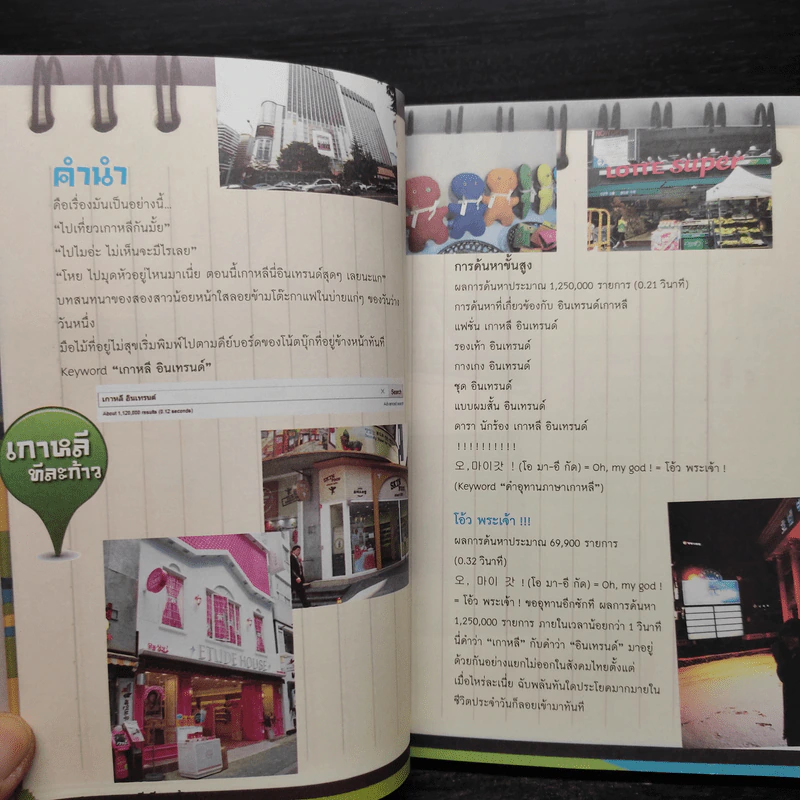 คำนำ
คือเรื่องมันเป็นอย่างนี้...
“ไปเที่ยวเกาหลีกันมั้ย”
“ไปไมอ่ะ ไม่เห็นจะมีไรเลย”
“โหย ไปมุดหัวอยู่ไหนมาเนี่ย ตอนนี้เกาหลีนี่อินเทรนด์สุดๆ เลยนะแก”
บทสนทนาของสองสาวน้อยหน้าใสลอยข้ามโต๊ะกาแฟในบ่ายแก่ๆ ของวันว่าง
วันหนึ่ง
มือไม้ที่อยู่ไม่สุขเริ่มพิมพ์ไปตามคีย์บอร์ดของโน้ตบุ๊กที่อยู่ข้างหน้าทันที
Keyword “เกาหลี อินเทรนด์”
เกาหลี อินเทรนด์
Search
About 1,120,000 results (0.12 seconds)
Advanced search
เกาหลี
ทีละก้าว
ETUDE HOUSE
LOTTE super
การค้นหาขั้นสูง
ผลการค้นหาประมาณ 1,250,000 รายการ (0.21 วินาที)
การค้นหาที่เกี่ยวข้องกับ อินเทรนด์เกาหลี
แฟชั่น เกาหลี อินเทรนด์
รองเท้า อินเทรนด์
กางเกง อินเทรนด์
ชุด อินเทรนด์
แบบผมสั้น อินเทรนด์
ดารา นักร้อง เกาหลี อินเทรนด์
! ! ! ! ! ! ! ! ! !
오, 마이갓 ! (โอ มา-อี กัด) = Oh, my god ! = โอ้ว พระเจ้า !
(Keyword “คำอุทานภาษาเกาหลี”)
โอ้ว พระเจ้า !!!
ผลการค้นหาประมาณ 69,900 รายการ
(0.32 วินาที)
오, 마이 갓 ! (โอ มา-อี กัด) = Oh, my god !
= โอ้ว พระเจ้า ! ขออุทานอีกซักที ผลการค้นหา
1,250,000 รายการ ภายในเวลาน้อยกว่า 1 วินาที
นี่คำว่า “เกาหลี” กับคำว่า “อินเทรนด์” มาอยู่
ด้วยกันอย่างแยกไม่ออกในสังคมไทยตั้งแต่
เมื่อไหร่ละเนี่ย ฉับพลันทันใดประโยคมากมายใน
ชีวิตประจำวันก็ลอยเข้ามาทันที